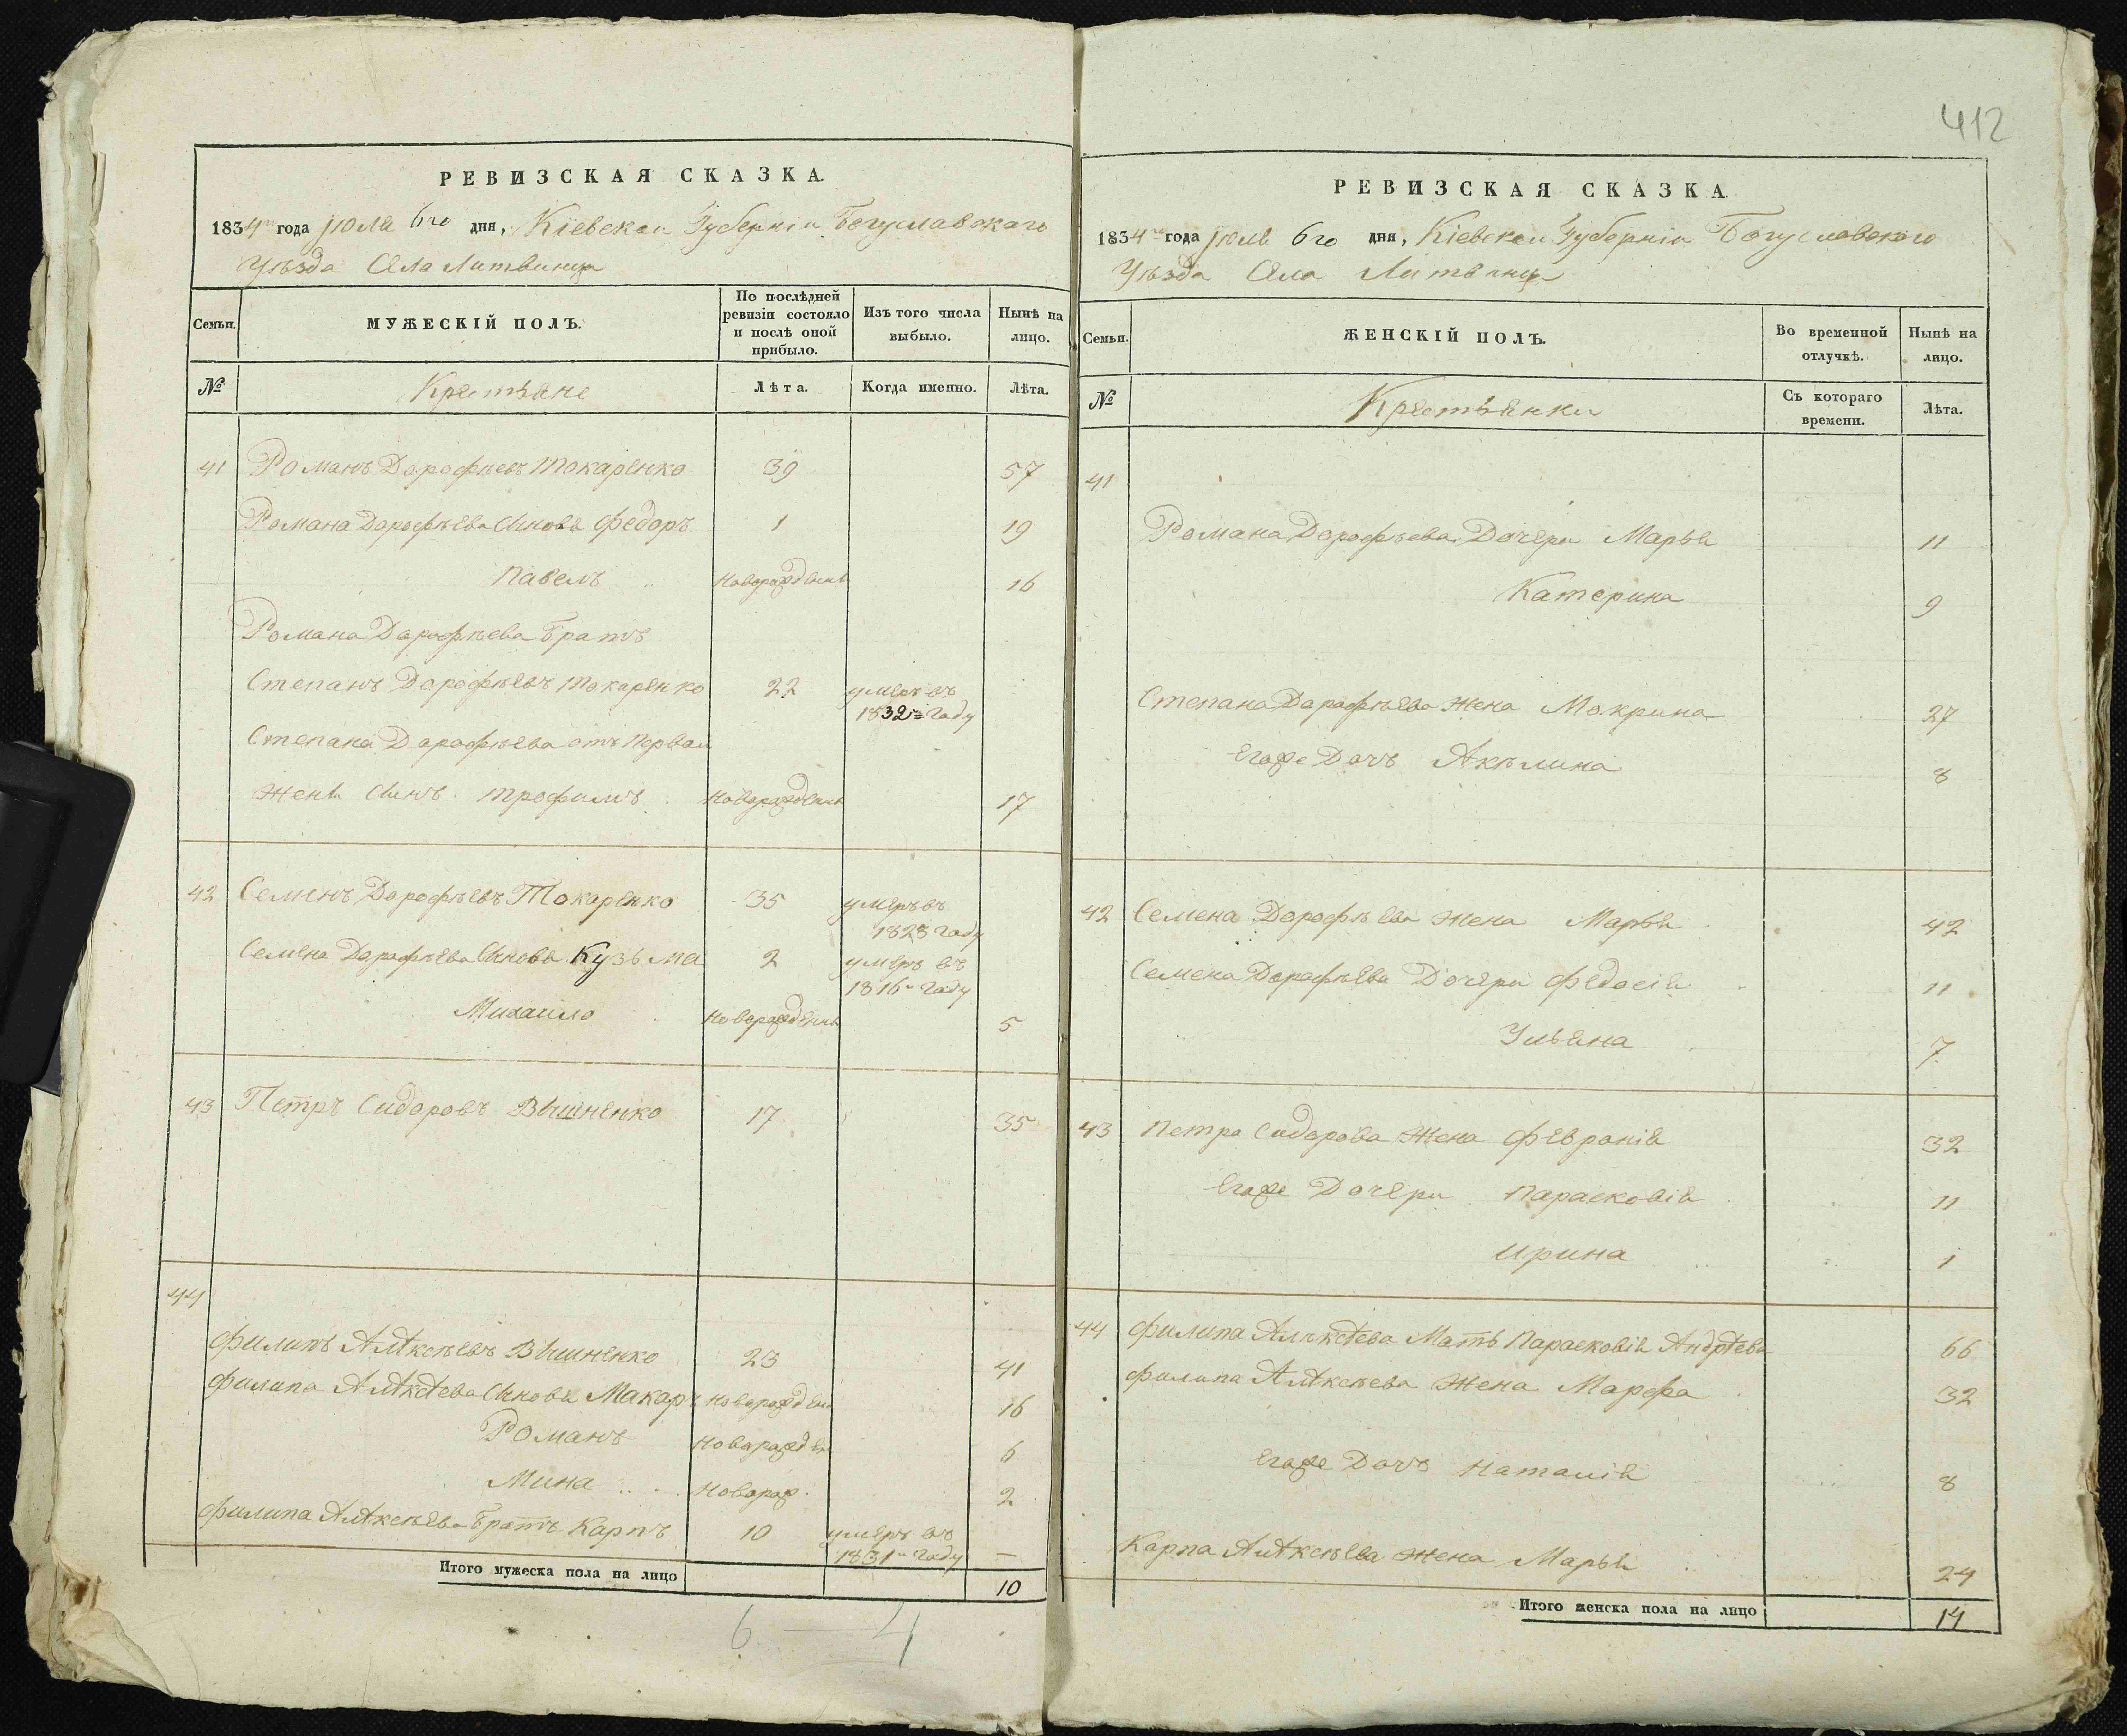 412
РЕВИЗСКАЯ СКАЗКА.
1834го года Июля 6го дня, Кіевской Губерніи Богуславского
Уѣзда Села Литвинца
Семьи.
МУЖЕСКІЙ ПОЛЪ.
По послѣдней ревизіи состояло и послѣ оной прибыло.
Изъ того числа выбыло.
Нынѣ на лицо.
№
Крестьяне
Лѣта.
Когда именно.
Лѣта.
41 Романъ Дорофѣевъ Токаренко 39 57
Романа Дорофѣева Сыновья Федоръ 1 19
Павелъ новорожденъ 16
Романа Дорофѣева братъ
Степанъ Дорофѣевъ Токаренко 22 умеръ въ
1832м Году
Степана Дорофѣева отъ первой
жены Сынъ Трофимъ новорожденъ 17
42 Семенъ Дорофѣевъ Токаренко 35 умеръ въ
1828 Году
Семена Дорофѣева Сыновья Кузьма 2 умеръ въ
1816м Году
Михайло новорожденъ 5
43 Петръ Сидоровъ Вишненко 17 35
44
Филипъ Алѣксѣевъ Вишненко 23 41
Филипа Алѣксѣева Сыновья Макаръ новорожден 16
Романъ новорожден 6
Мина новорож. 2
Филипа Алѣксѣева братъ Карпъ 10 умеръ въ
1831м Году —
Итого мужеска пола на лицо 10
6 — 4
РЕВИЗСКАЯ СКАЗКА.
1834го года Июля 6го дня, Кіевской Губерніи Богуславского
Уѣзда Села Литвинца
Семьи.
ЖЕНСКІЙ ПОЛЪ.
Во временной отлучкѣ.
Нынѣ на лицо.
№
Крестьянки
Съ котораго времени.
Лѣта.
41
Романа Дорофѣева Дочери Марья 11
Катерина 9
Степана Дорофѣева жена Мокрина 27
Егоже Дочь Акѣлина 8
42 Семена Дорофѣева жена Марья 42
Семена Дорофѣева Дочери Федосія 11
Ульяна 7
43 Петра Сидорова жена Февронія 32
Егоже Дочери Парасковія 11
Ирина 1
44 Филипа Алѣксѣева Мать Парасковія Андрѣева 66
Филипа Алѣксѣева жена Марфа 32
Егоже Дочь Наталія 8
Карпа Алѣксѣева жена Марья 24
Итого женска пола на лицо 14